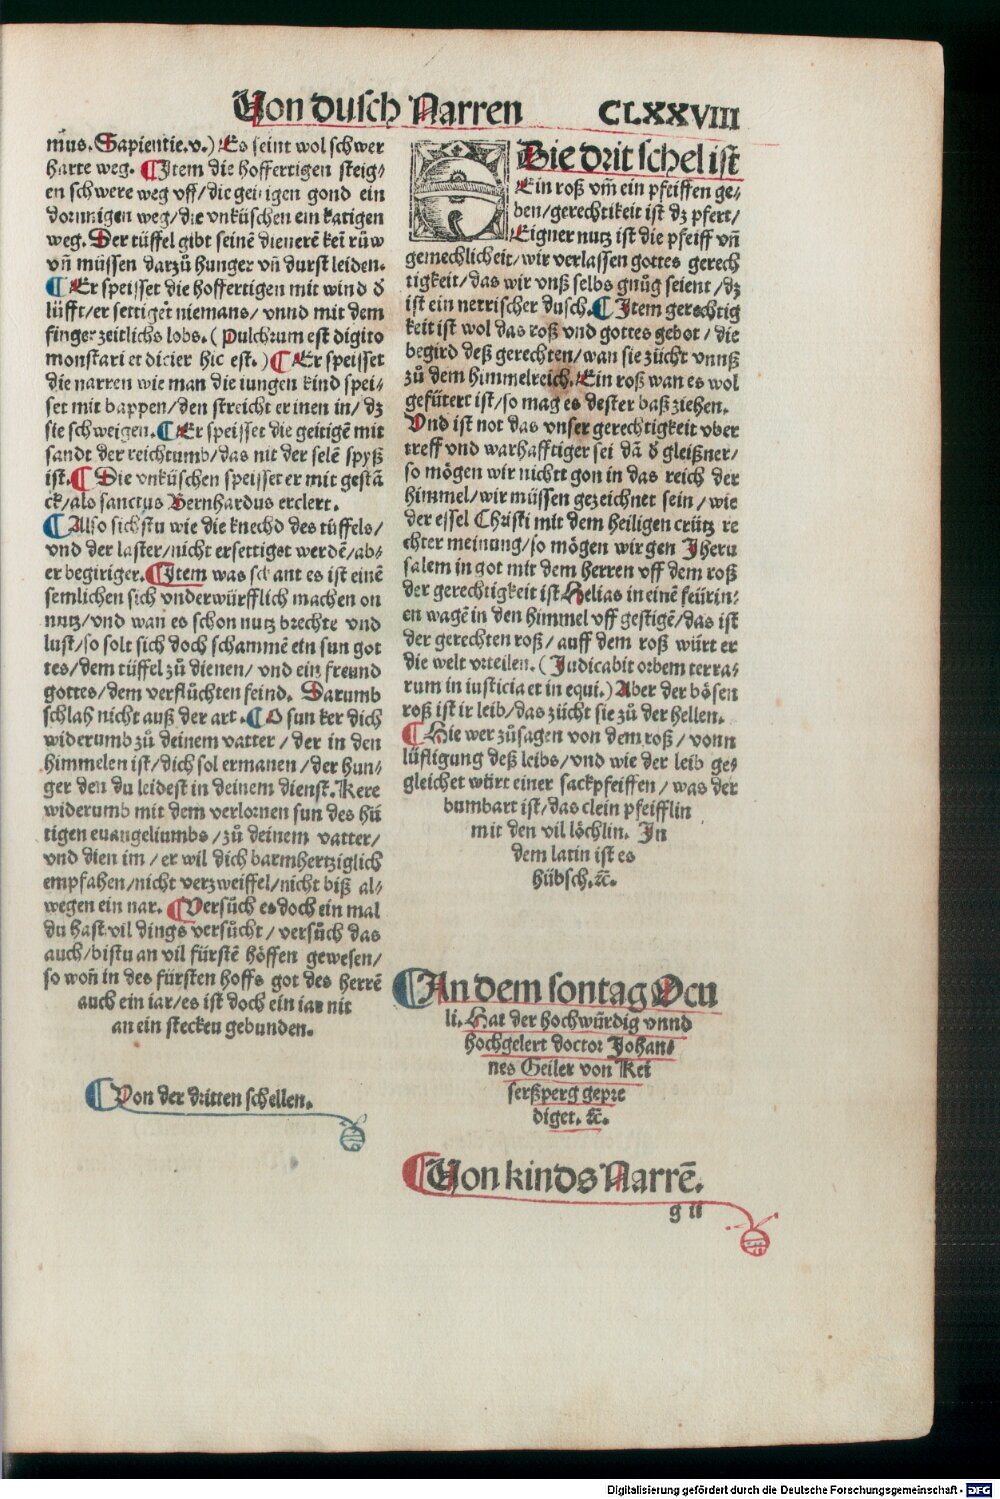 Von dusch Narren CLXXVIII
mus. Sapientie.v.) Es seint wol schwer
harte weg. ¶ Item die hoffertigen steig⸗
en schwere weg vff/die geitigen gond ein
dornnigen weg/die vnküschen ein katigen
weg. Der tüffel gibt seinē dienerē kei᷑ rüw
vn̄ müssen darzů hunger vn̄ durst leiden.
¶ Er speisset die hoffertigen mit wind d᷑
lüfft/er settiget niemans/vnnd mit dem
finger zeitlichs lobs. (Pulchrum est digito
monstari et dicier hic est.) ¶ Er speisset
die narren wie man die iungen kind spei⸗
set mit bappen/den streicht er inen in/dz
sie schweigen. ¶ Er speisset die geitigē mit
sandt der reichtumb/das nit der selē spyß
ist. ¶ Die vnküschen speisset er mit gestā
ck/als sanctus Bernhardus erclert.
¶ Allso sichstu wie die knechd des tüffels/
vnd der laster/nicht ersettiget werdē/ab⸗
er begiriger. ¶ Item was schant es ist einē
semlichen sich vnderwürfflich machen on
nutz/vnd wan es schon nutz brechte vnd
lust/so solt sich doch schammē ein sun got
tes/dem tüffel zů dienen/vnd ein freund
gottes/dem verflüchten feind. Darumb
schlah nicht auß der art. ¶ O sun ker dich
widerumb zů deinem vatter/der in den
himmelen ist/dich sol ermanen/der hun⸗
ger den du leidest in deinem dienst. Kere
widerumb mit dem verlornen sun des hü
tigen euangeliumbs/zů deinem vatter/
vnd dien im/er wil dich barmhertziglich
empfahen/nicht verzweiffel/nicht biß al⸗
wegen ein nar. ¶ Versůch es doch ein mal
du hast vil dings versůcht/versůch das
auch/bistu an vil fürstē höffen gewesen/
so won̄ in des fürsten hoffs got des herrē
auch ein iar/es ist doch ein iar nit
an ein stecken gebunden.
¶ Von der dritten schellen.
Die drit schel ist
Ein roß vm̄ ein pfeiffen ge⸗
ben/gerechtikeit ist dz pfert/
Eigner nutz ist die pfeiff vn̄
gemechlicheit/wir verlassen gottes gerech
tigkeit/das wir vnß selbs gnůg seient/dz
ist ein nerrischer dusch. ¶ Item gerechtig
keit ist wol das roß vnd gottes gebot/die
begird deß gerechten/wan sie zücht vnnß
zů dem himmelreich. Ein roß wan es wol
gefůtert ist/so mag es dester baß ziehen.
Vnd ist not das vnser gerechtigkeit vber
treff vnd warhafftiger sei dā d᷑ gleißner/
so mögen wir nichtt gon in das reich der
himmel/wir müssen gezeichnet sein/wie
der essel Christi mit dem heiligen crütz re
chter meinung/so mögen wir gen Iheru
salem in got mit dem herren vff dem roß
der gerechtigkeit ist Helias in einē feürin⸗
en wagē in den himmel vff gestigē/das ist
der gerechten roß/auff dem roß würt er
die welt vrteilen. (Iudicabit orbem terra⸗
rum in iusticia et in equi.) Aber der bösen
roß ist ir leib/das zücht sie zů der hellen.
¶ Hie wer zůsagen von dem roß/vonn
lüfligung deß leibs/vnd wie der leib ge⸗
gleichet würt einer sackpfeiffen/was der
bumbart ist/das clein pfeifflin
mit den vil löchlin. In
dem latin ist es
hübsch.⁊c.
¶ An dem sontag Ocu
li. Hat der hochwürdig vnnd
hochgelert doctor Johan⸗
nes Geiler von Kei
serßperg gepre
diget. ⁊c.
¶ Von kinds Narrē.
g ii
Digitalisierung gefördert durch die Deutsche Forschungsgemeinschaft - DFG